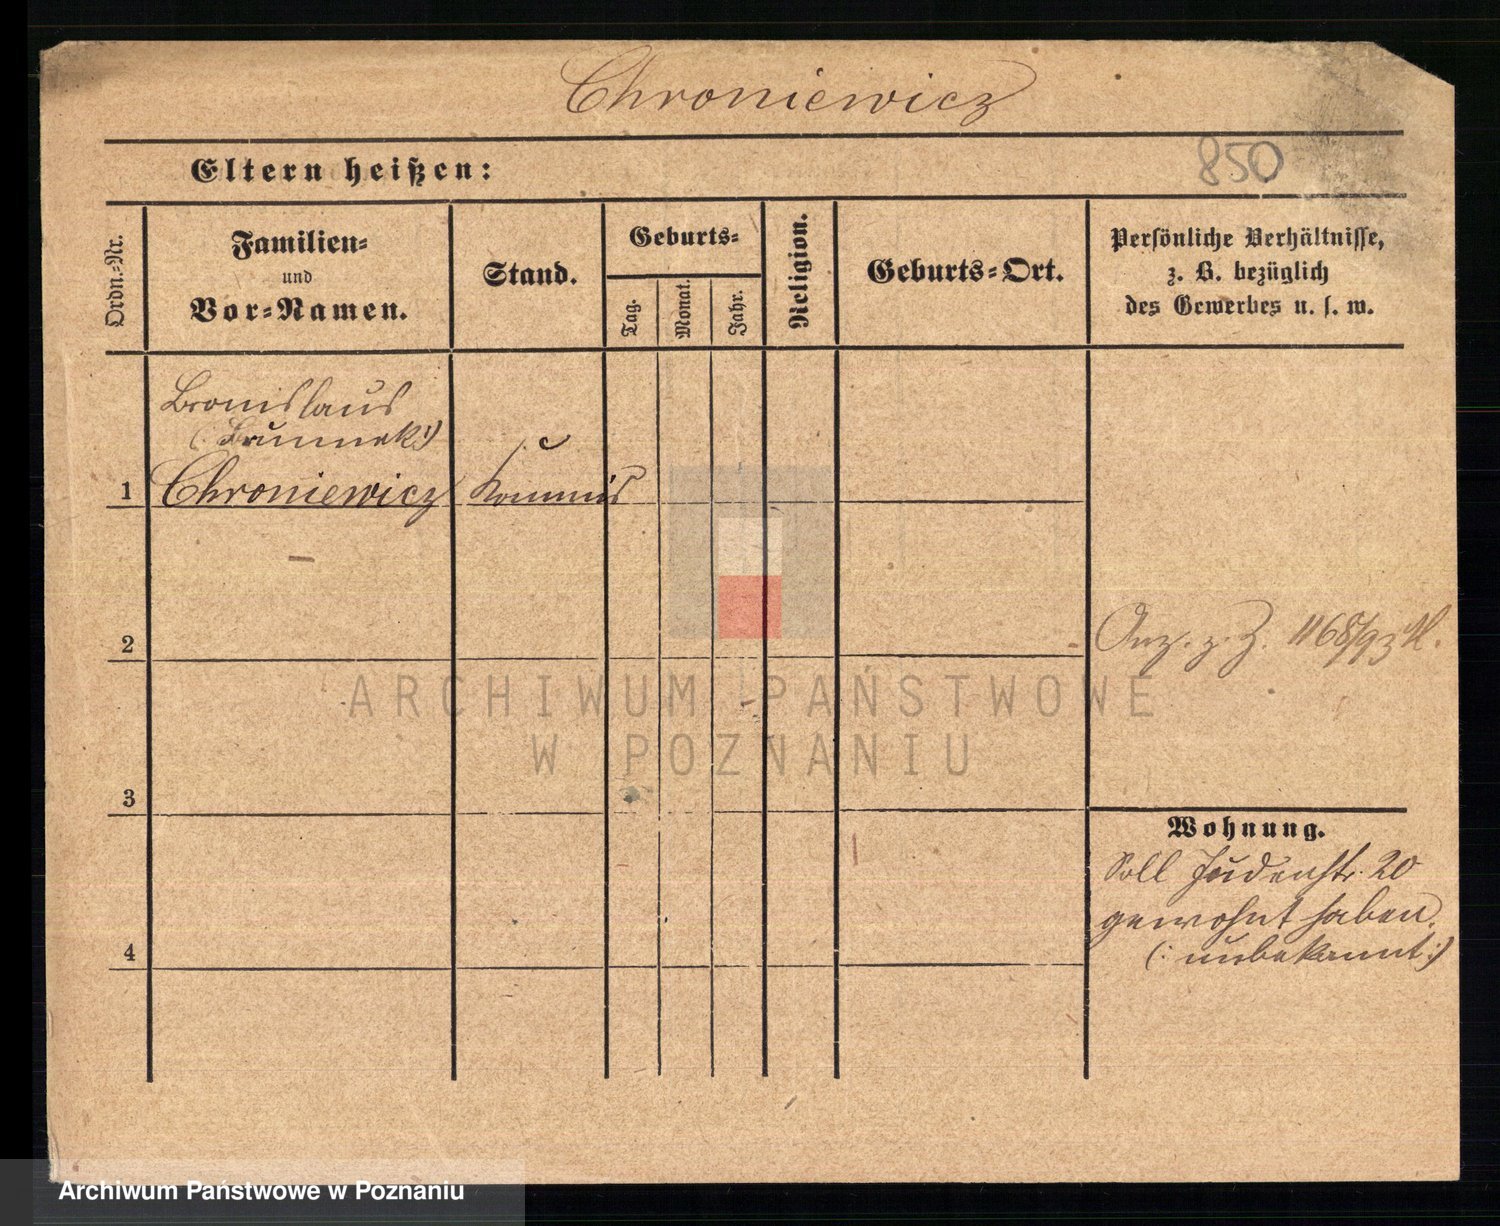 Chroniewicz
Eltern heißen:
850
Ordn.-Nr.
Familien-
und
Vor-Namen.
Stand.
Geburts-
Tag.
Monat.
Jahr.
Religion.
Geburts-Ort.
Persönliche Verhältnisse,
z. B. bezüglich
des Gewerbes u. s. w.
Bronislaus
1 Chroniewicz Kommis
2
Anz. z. Z. 1168/93
3
4
Wohnung.
Soll Judenstr. 20
gewohnt haben.
(: unbekannt :)
ARCHIWUM PAŃSTWOWE
W POZNANIU
Archiwum Państwowe w Poznaniu